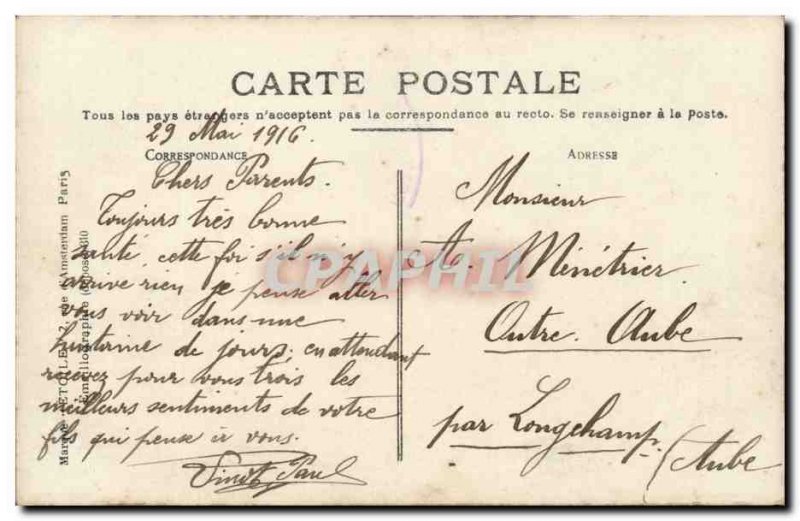 CARTE POSTALE
Tous les pays étrangers n'acceptent pas la correspondance au recto. Se renseigner à la Poste.
29 Mai 1916.
CORRESPONDANCE
Chers Parents.
Toujours très bonne
santé, cette foi s'il n'y
arrive rien je pense aller
vous voir dans une
huitaine de jours; en attendant
recevez pour vous trois les
meilleurs sentiments de votre
fils qui pense à vous.
Paul
ADRESSE
Monsieur
A. Ménétrier
Outre. Aube
par Longchamp
(Aube
Marque ETOILE, 2, rue d'Amsterdam Paris
Emaillographie
CPAPHIL